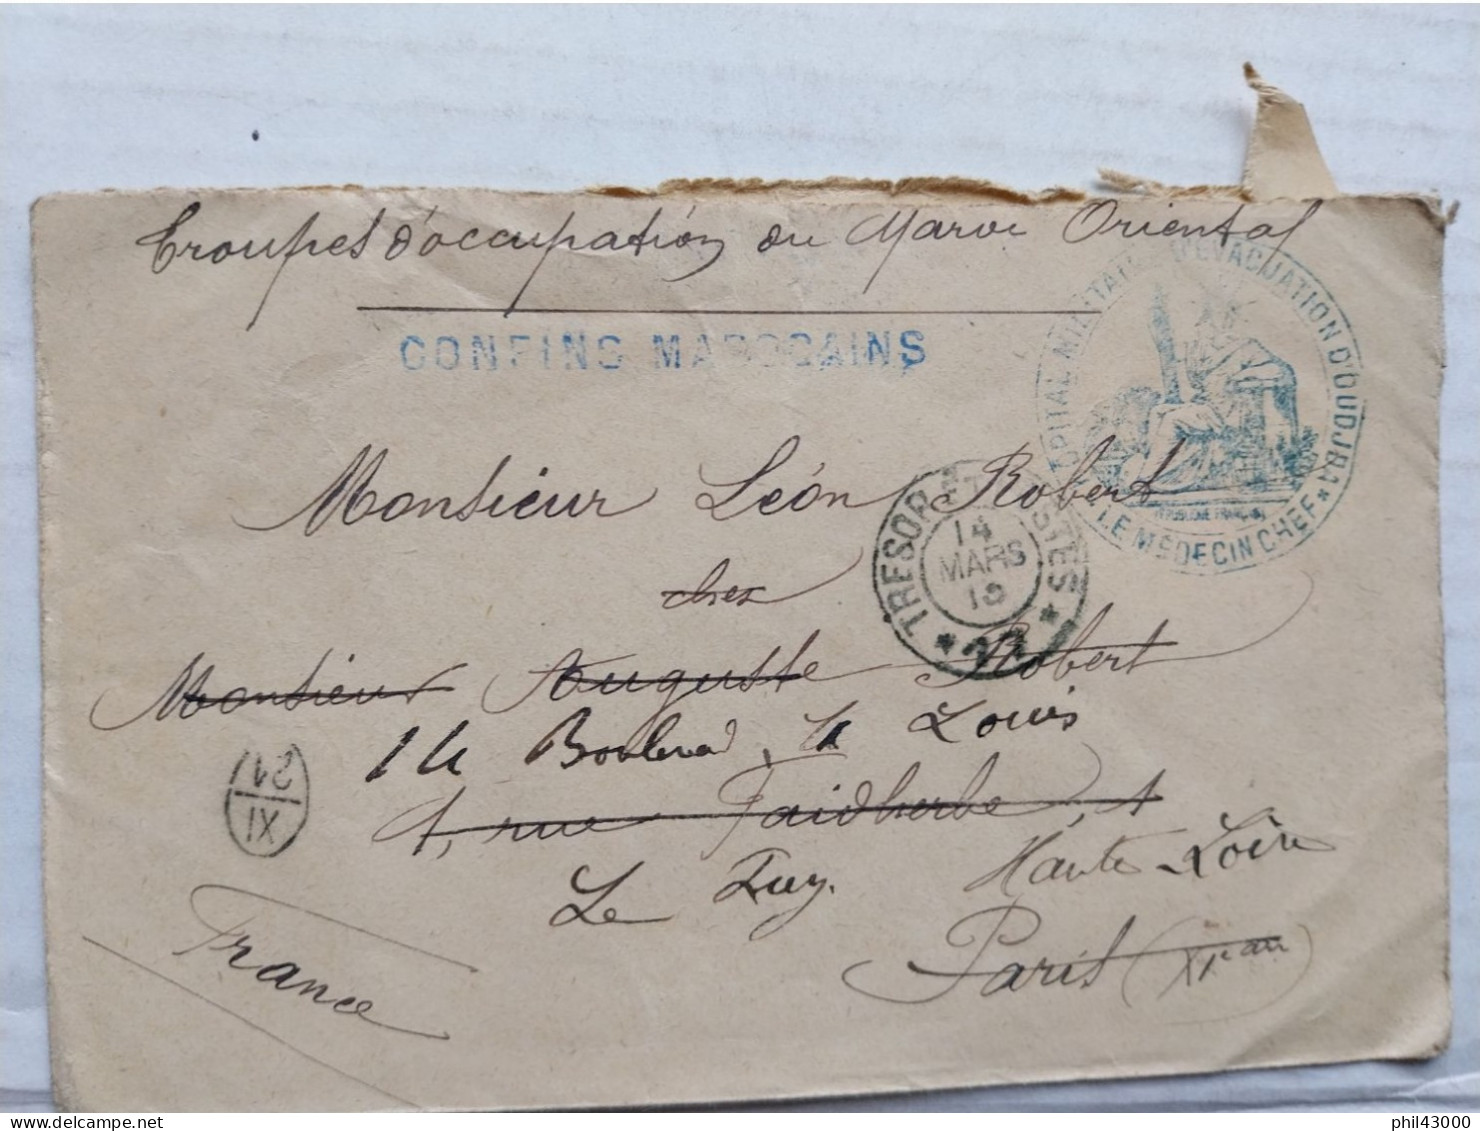 Troupes d'occupation du Maroc Oriental
CONFINS MAROCAINS
HOPITAL MILITAIRE D'EVACUATION D'OUDJDA
LE MÉDECIN CHEF
RÉPUBLIQUE FRANÇAISE
Monsieur Léon Robert
TRESOR ET POSTES
14
MARS
chez
Monsieur Auguste Robert
14 Boulevard St Louis
XI
21
1, rue Faidherbe, 1
Le Puy. Haute Loire
France
Paris (XIe arr)
phil43000